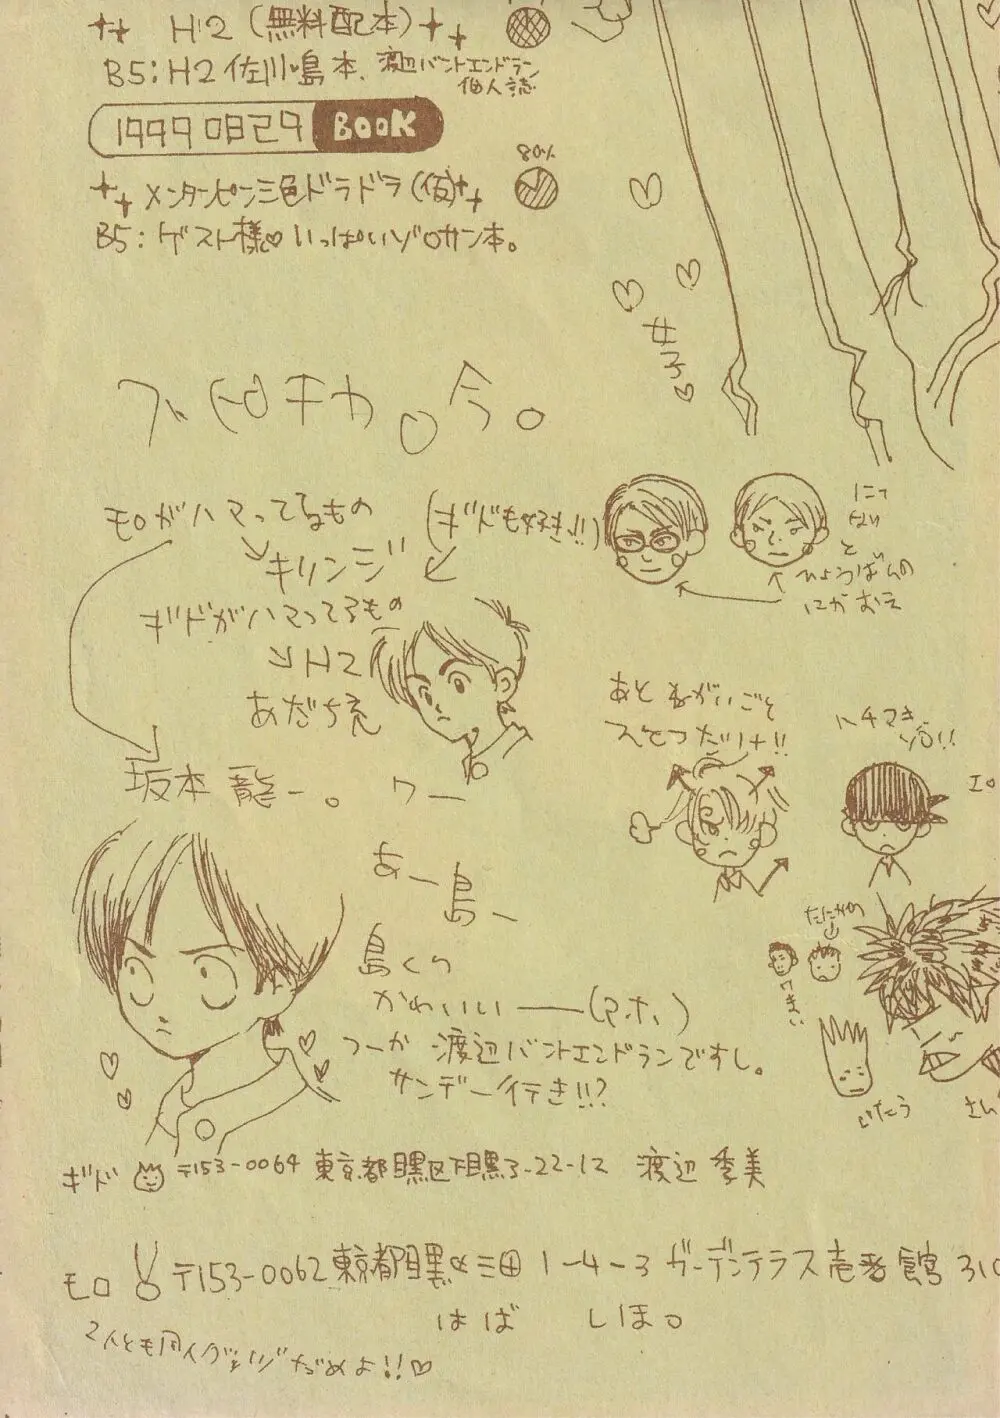 H2(無料配本)
B5:H2佐川♥島本、渡辺バントエンドラン
個人誌
19990829 BOOK
80%
メンタンピン三色ドラドラ(仮)
B5:ゲスト様♡いっぱいゾロサン本。
女子♡
今。
モロがハマってるもの
(ギドも好き!!)
キリンジ
ギドがハマってるもの
H2
あだち充
坂本龍一。 ワー
にて
ない
と
ひょうばんの
にがおえ
あと ねがいごと
ひとつだけ!!
ハチマキ
ゾロ!!
エロ
あー島
島くり
かわいいー(アホ)
つーか 渡辺バントエンドランですし。
サンデー行き!!?
たにがわ
ワキい
いたう
さん
ギド 〒153-0064 東京都目黒区下目黒3-22-12 渡辺 季美
モロ 〒153-0062 東京都目黒区三田1-4-3 ガーデンテラス壱番館 310
はば しほ。
2人とも同人グッズだめよ!!♡